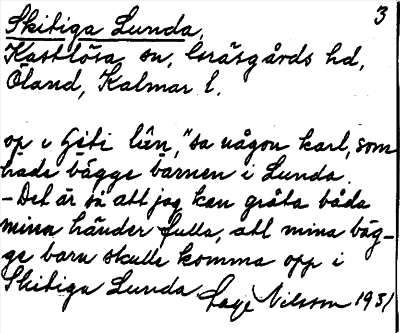 3
Skitiga Lunda,
Kastlösa sn, Gräsgårds hd,
Öland, Kalmar l.
op i Göti lien," sa någon karl, som
hade bägge barnen i Lunda.
- Det är så att jag kan gråta båda
mina händer fulla, att mina bäg-
ge barn skulle komma opp i
Skitiga Lunda
Tage Nilsson 1931